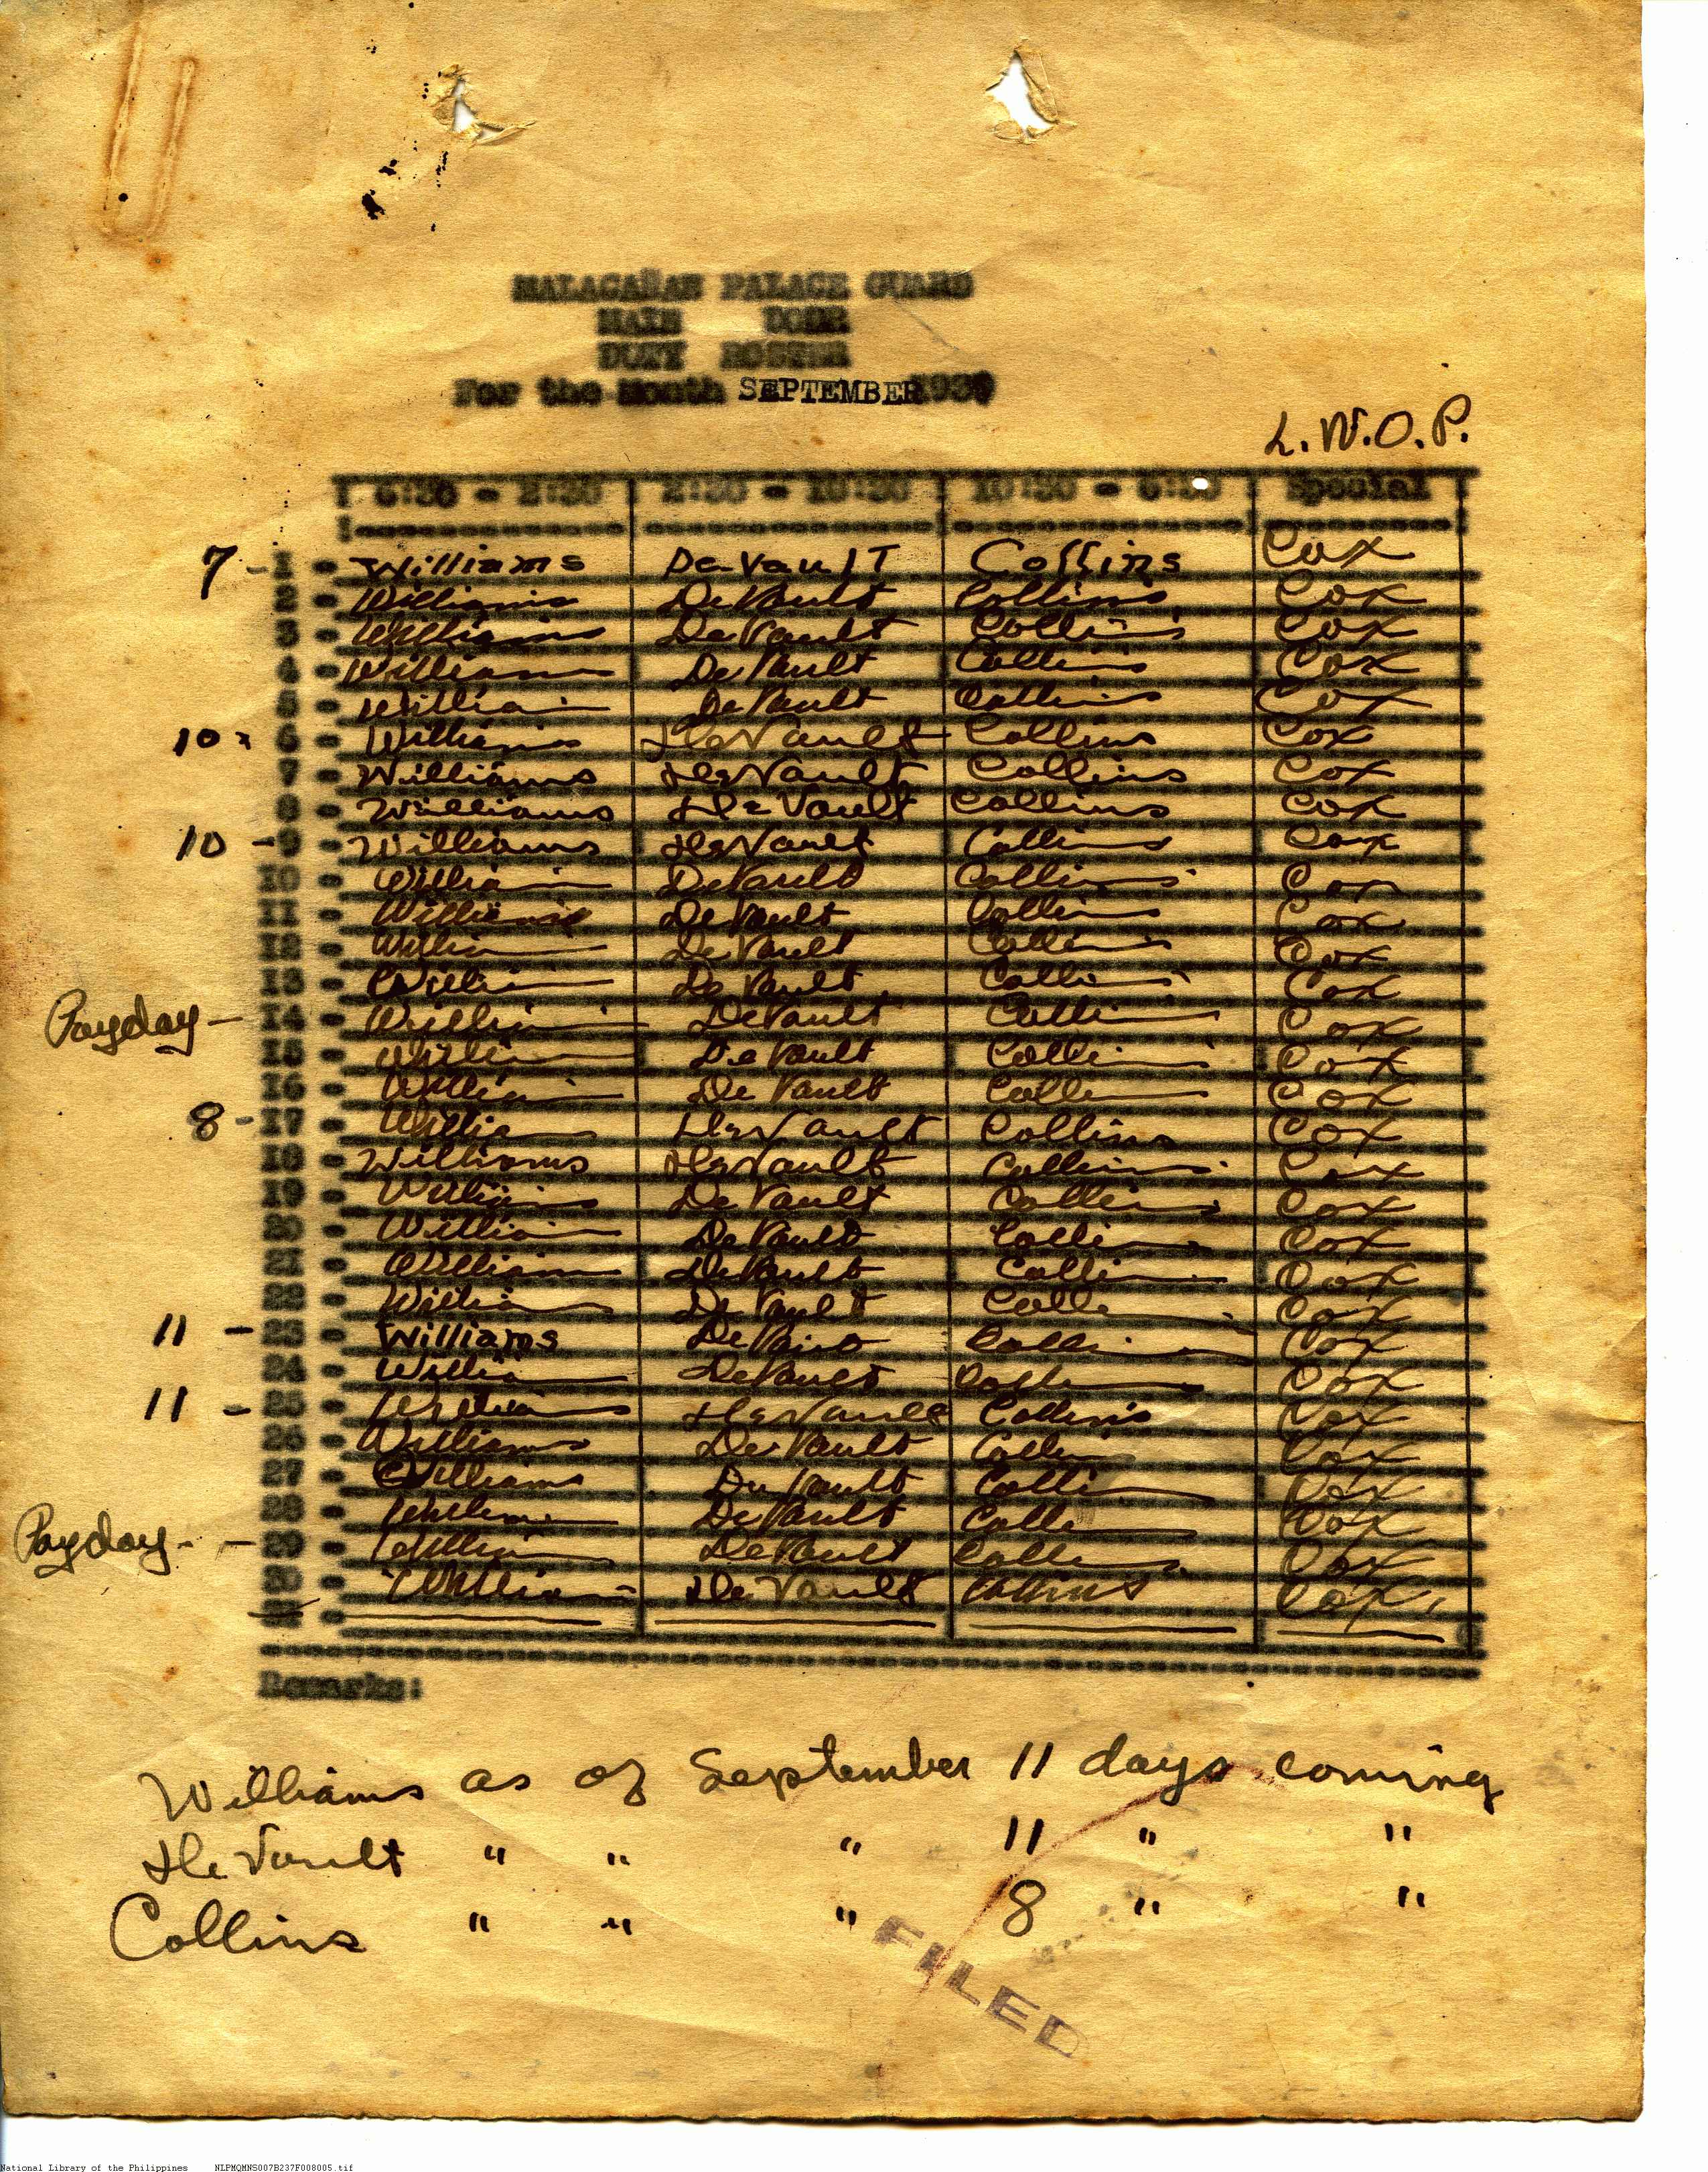 MALACAÑAN PALACE GUARD
MAIN DOOR
DUTY ROSTER
For the Month SEPTEMBER 1939
L.W.O.P.
6:30 - 2:30 2:30 - 10:30 10:30 - 6:30 Special
7 - 1 - Williams DeVault Collins Cox
2 - Williams DeVault Collins Cox
3 - Williams DeVault Collins Cox
4 - Williams DeVault Collins Cox
5 - Williams DeVault Collins Cox
10 - 6 - Williams DeVault Collins Cox
7 - Williams DeVault Collins Cox
8 - Williams DeVault Collins Cox
10 - 9 - Williams DeVault Collins Cox
10 - Williams DeVault Collins Cox
11 - Williams DeVault Collins Cox
12 - Williams DeVault Collins Cox
13 - Williams DeVault Collins Cox
Payday - 14 - Williams DeVault Collins Cox
15 - Williams DeVault Collins Cox
16 - Williams DeVault Collins Cox
8 - 17 - Williams DeVault Collins Cox
18 - Williams DeVault Collins Cox
19 - Williams DeVault Collins Cox
20 - Williams DeVault Collins Cox
21 - Williams DeVault Collins Cox
22 - Williams DeVault Collins Cox
11 - 23 - Williams DeVault Collins Cox
24 - Williams DeVault Collins Cox
11 - 25 - Williams DeVault Collins Cox
26 - Williams DeVault Collins Cox
27 - Williams DeVault Collins Cox
28 - Williams DeVault Collins Cox
Payday - - 29 - Williams DeVault Collins Cox
30 - Williams DeVault Collins Cox
31 -
Remarks:
Williams as of September 11 days coming
DeVault " " " 11 " "
Collins " " " 8 " "
FILED
National Library of the Philippines NLPMQMNS007B237F008005.tif